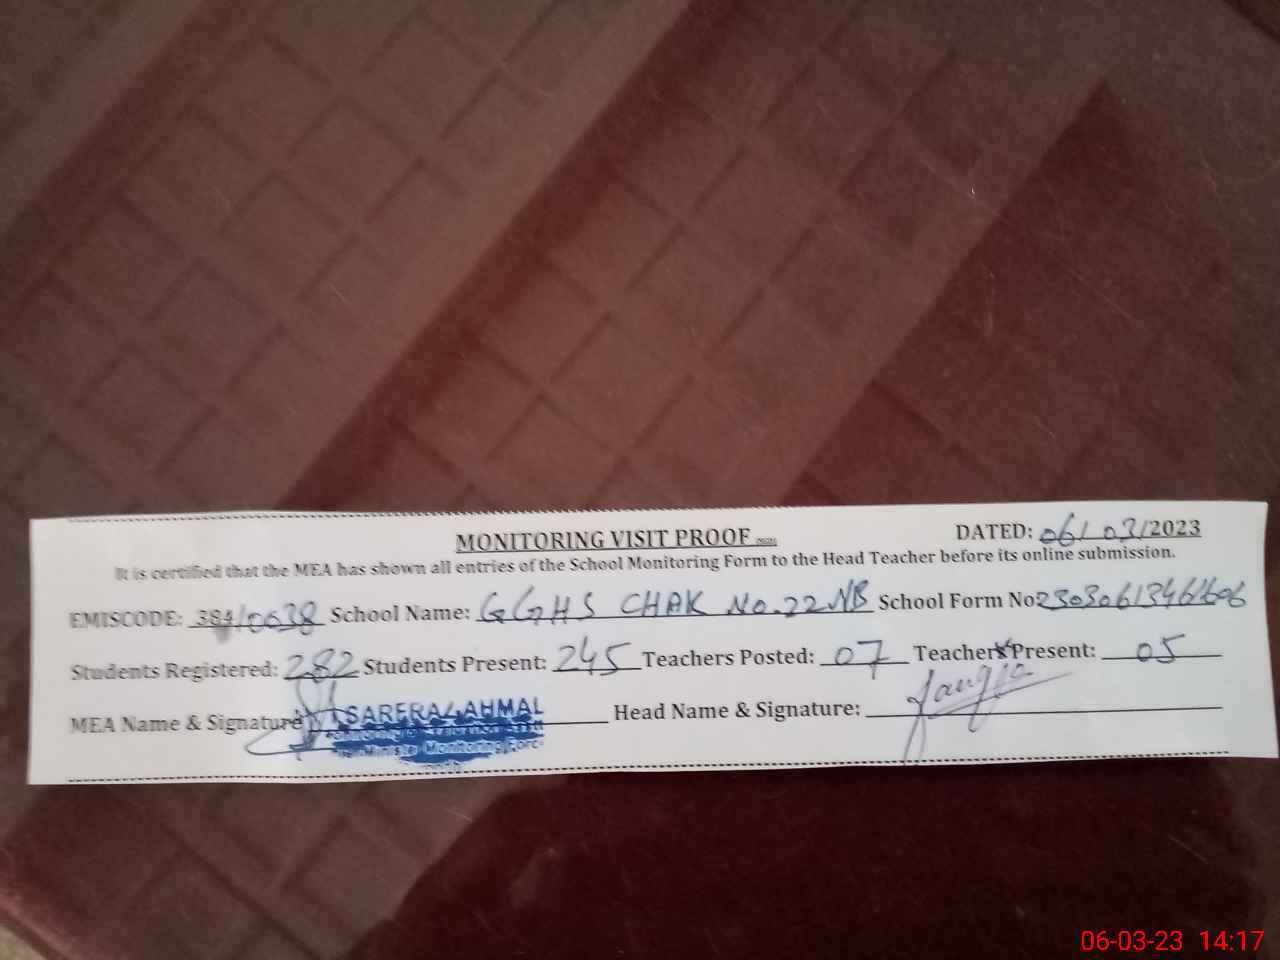 MONITORING VISIT PROOF DATED: 06/03/2023
It is certified that the MEA has shown all entries of the School Monitoring Form to the Head Teacher before its online submission.
EMISCODE: 384/0038 School Name: GGHS CHAK No. 22 NB School Form No
Students Registered: 282 Students Present: 245 Teachers Posted: 07 Teachers Present: 05
MEA Name & Signature Head Name & Signature:
Monitoring
06-03-23 14:17